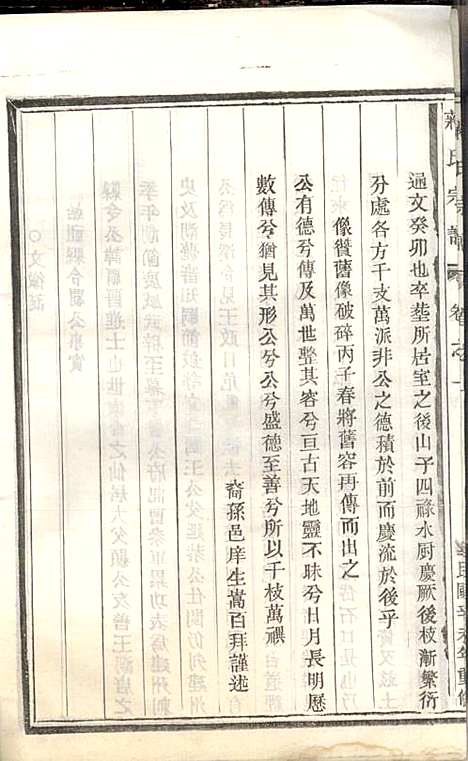 氏宗譜 卷之
適文癸卯也卒塟所居室之後山子四祿水厨慶厥後枝漸繁衍
分處各方千支萬派非公之德積於前而慶流於後乎
像贊舊像破碎丙子春將舊容再傳而出之
公有德兮傳及萬世整其容兮亘古天地靈不昧兮日月長明歷
數傳兮猶見其形公兮公兮盛德至善兮所以千枝萬禩
裔孫邑庠生嵩百拜謹述